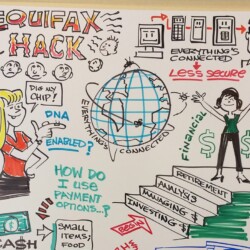 EQUIFAX
HACK
DIG MY
CHIP!
DNA
ENABLED?
EVERYTHING'S
CONNECTED
EVERYTHING'S
CONNECTED
LESS SECURE
FINANCIAL
RETIREMENT
ANALYSIS
MANAGING $
INVESTING $
HOW DO
I USE
PAYMENT
OPTIONS..?
CASH
SMALL
ITEMS;
FOOD